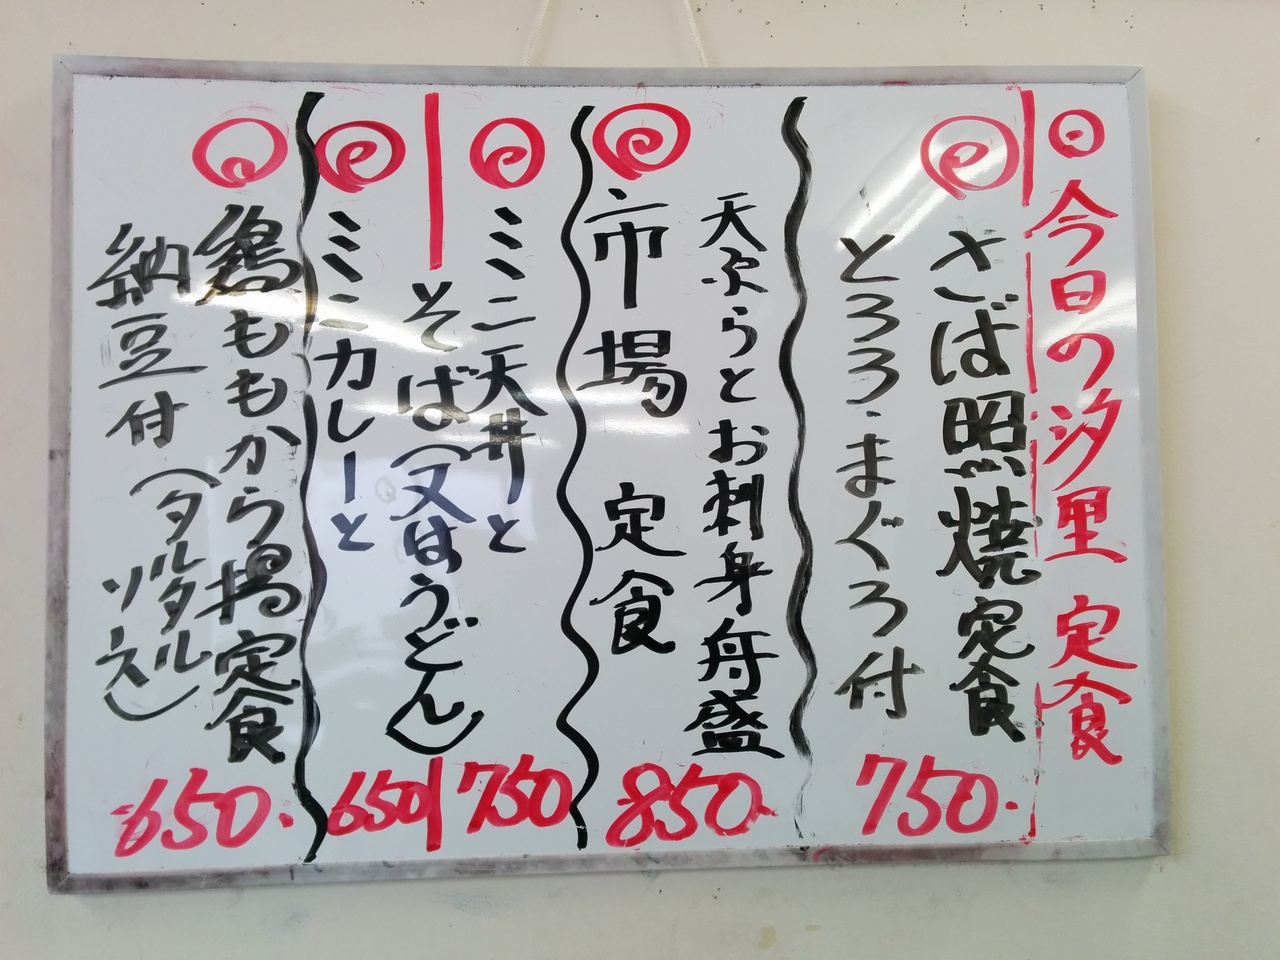 今日の汐里 定食
さば照焼定食
とろろ・まぐろ付
750.
天ぷらとお刺身舟盛
市場 定食
850.
ミニ天丼と
そば(又はうどん)
750
ミニカレーと
650
鶏ももから揚定食
納豆付(タルタル
ソース)
650.